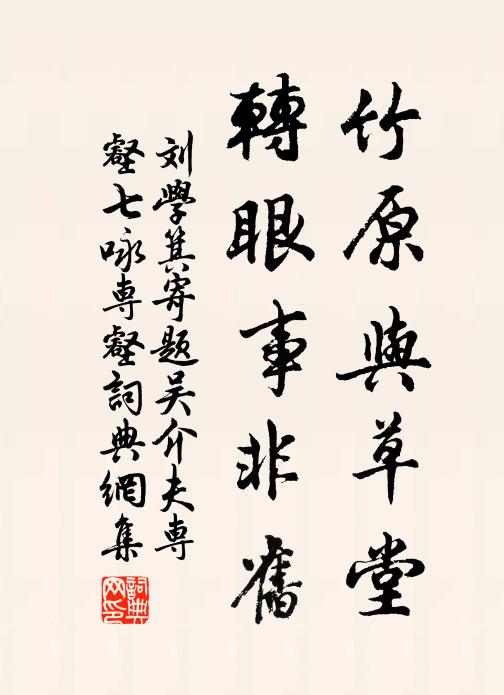 竹原與草堂
轉眼事非舊
刘學箕寄題吴介夫專
壑七咏專壑詞典網集
詞典网印